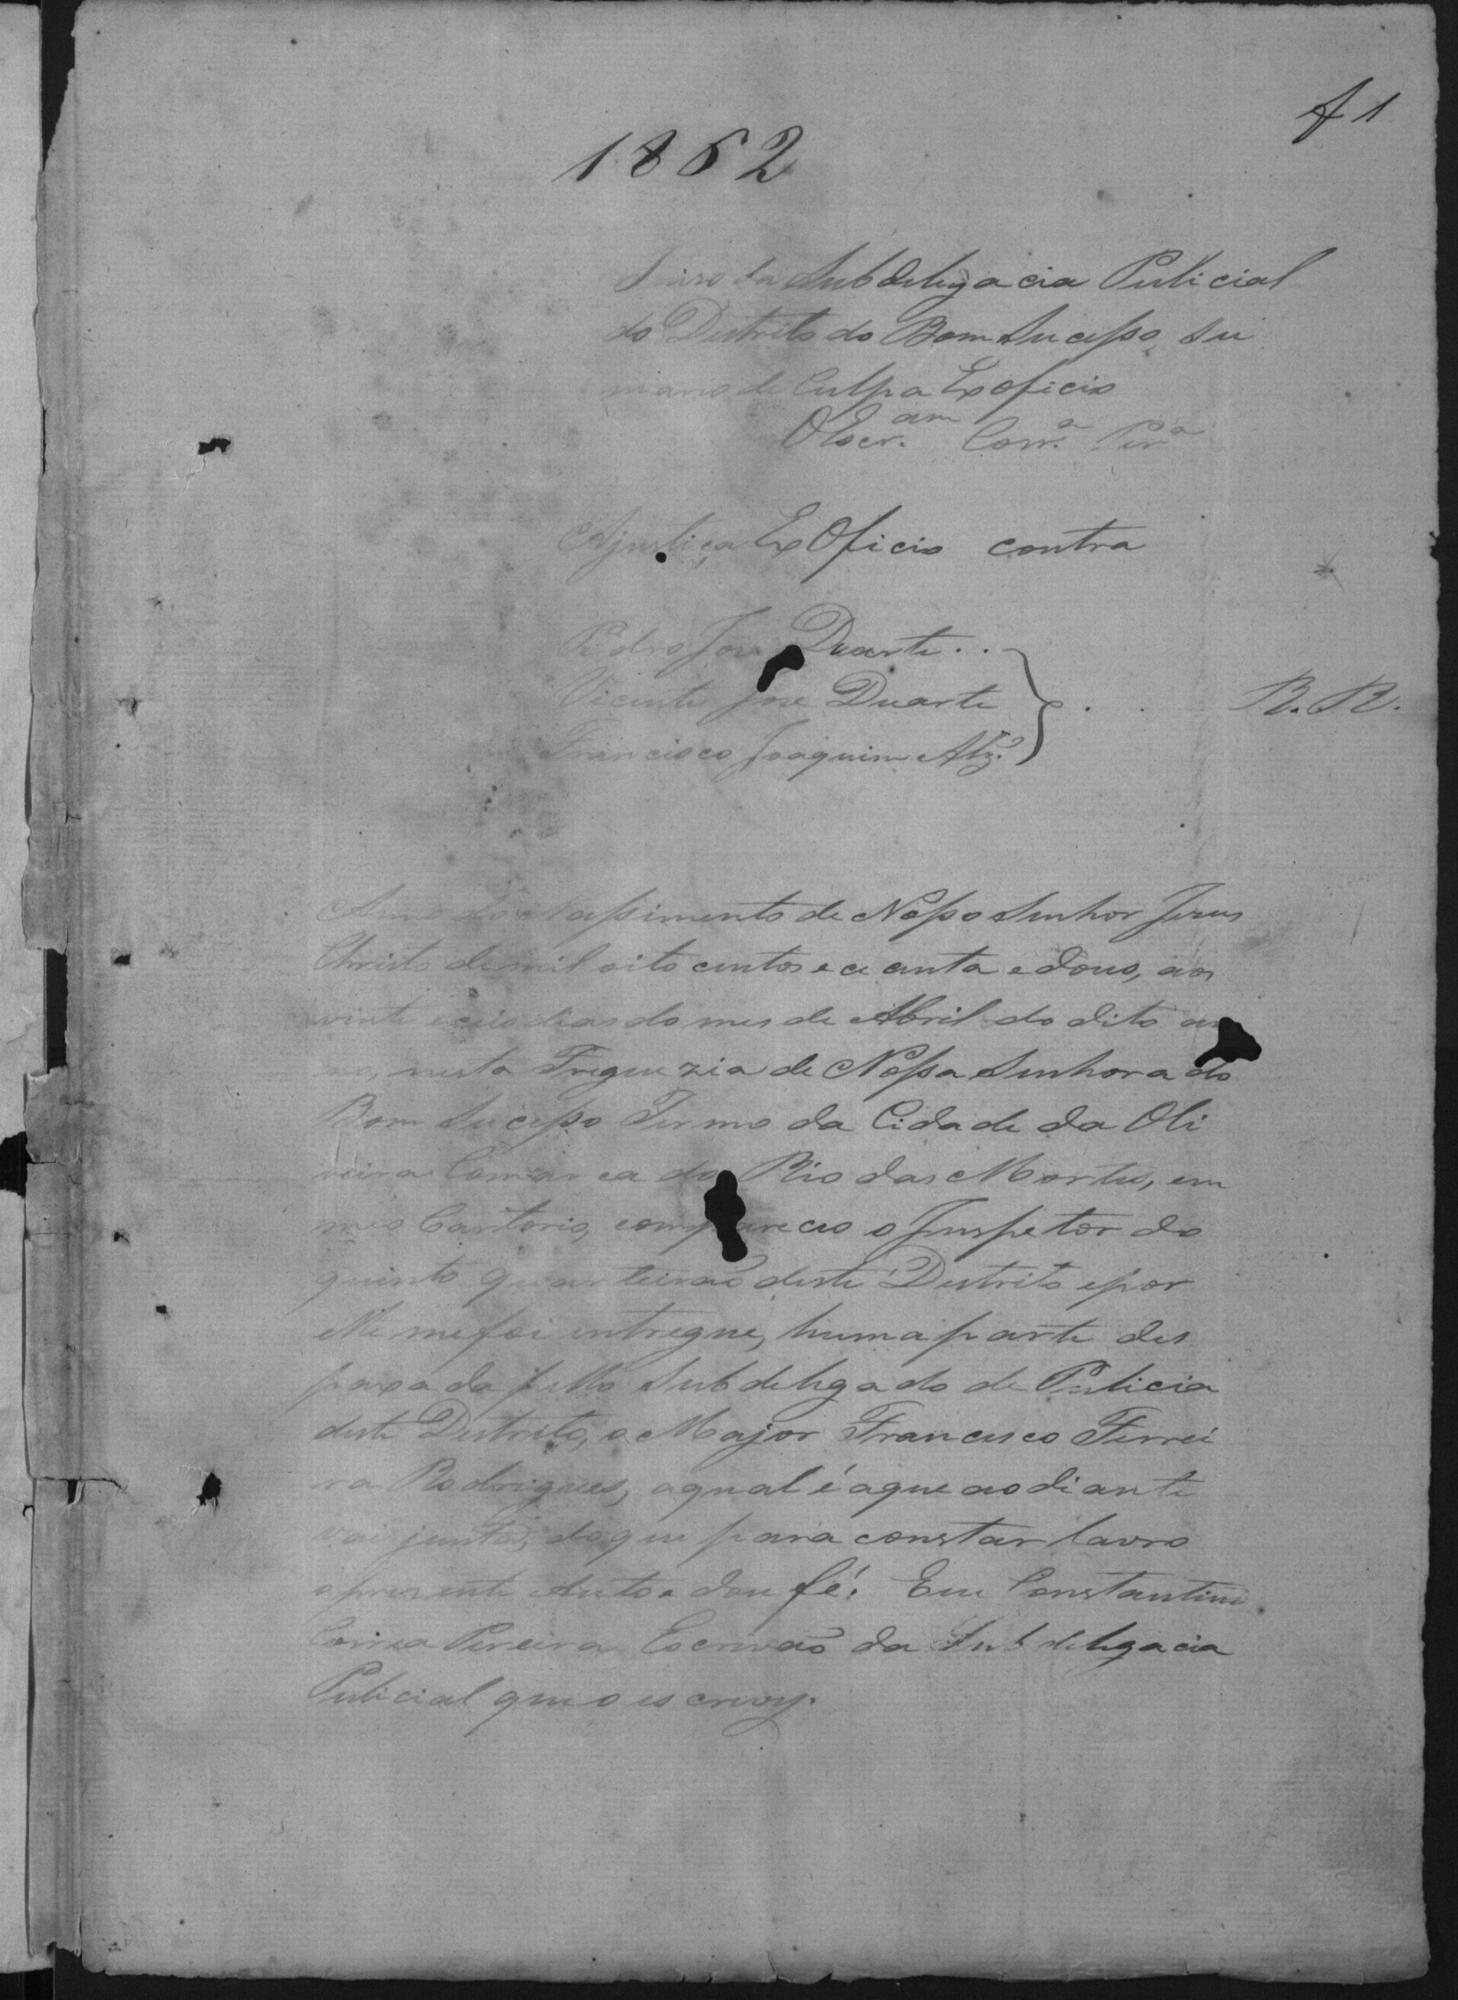 f 1
1862
Juizo da Subdelegacia Pulicial
do Destrito do Bom Sucesso Su
mario de Culpa Ex oficio
O Escr.am Corr.a Per.a
Ajustiça Ex Oficio contra
Pedro José Duarte . .
Vicente José Duarte . . R. R.
Francisco Joaquim Alz.
Anno do Nassimento de Nosso Senhor Jezus
Christo de mil oito centos e cecenta e dous, aos
vinte e dias do mes de Abril do dito an
no, nesta Freguezia de Nossa Senhora do
Bom Sucesso Termo da Cidade da Oli
veira Comarca do Rio das Mortes, em
meo Cartorio, compareceo o Inspetor do
quinto quarteirão deste Destrito e por
elle me foi entregue, huma parte des
paxada pello Subdelegado de Pulicia
deste Destrito, o Major Francisco Ferrei
ra Rodrigues, aqual é aque ao diante
vai junta, do que para constar lavro
o presente Auto e dou fé. Eu Constantino
Correa Pereira Escrivaõ da Subdelegacia
Pulicial que o escrevy.